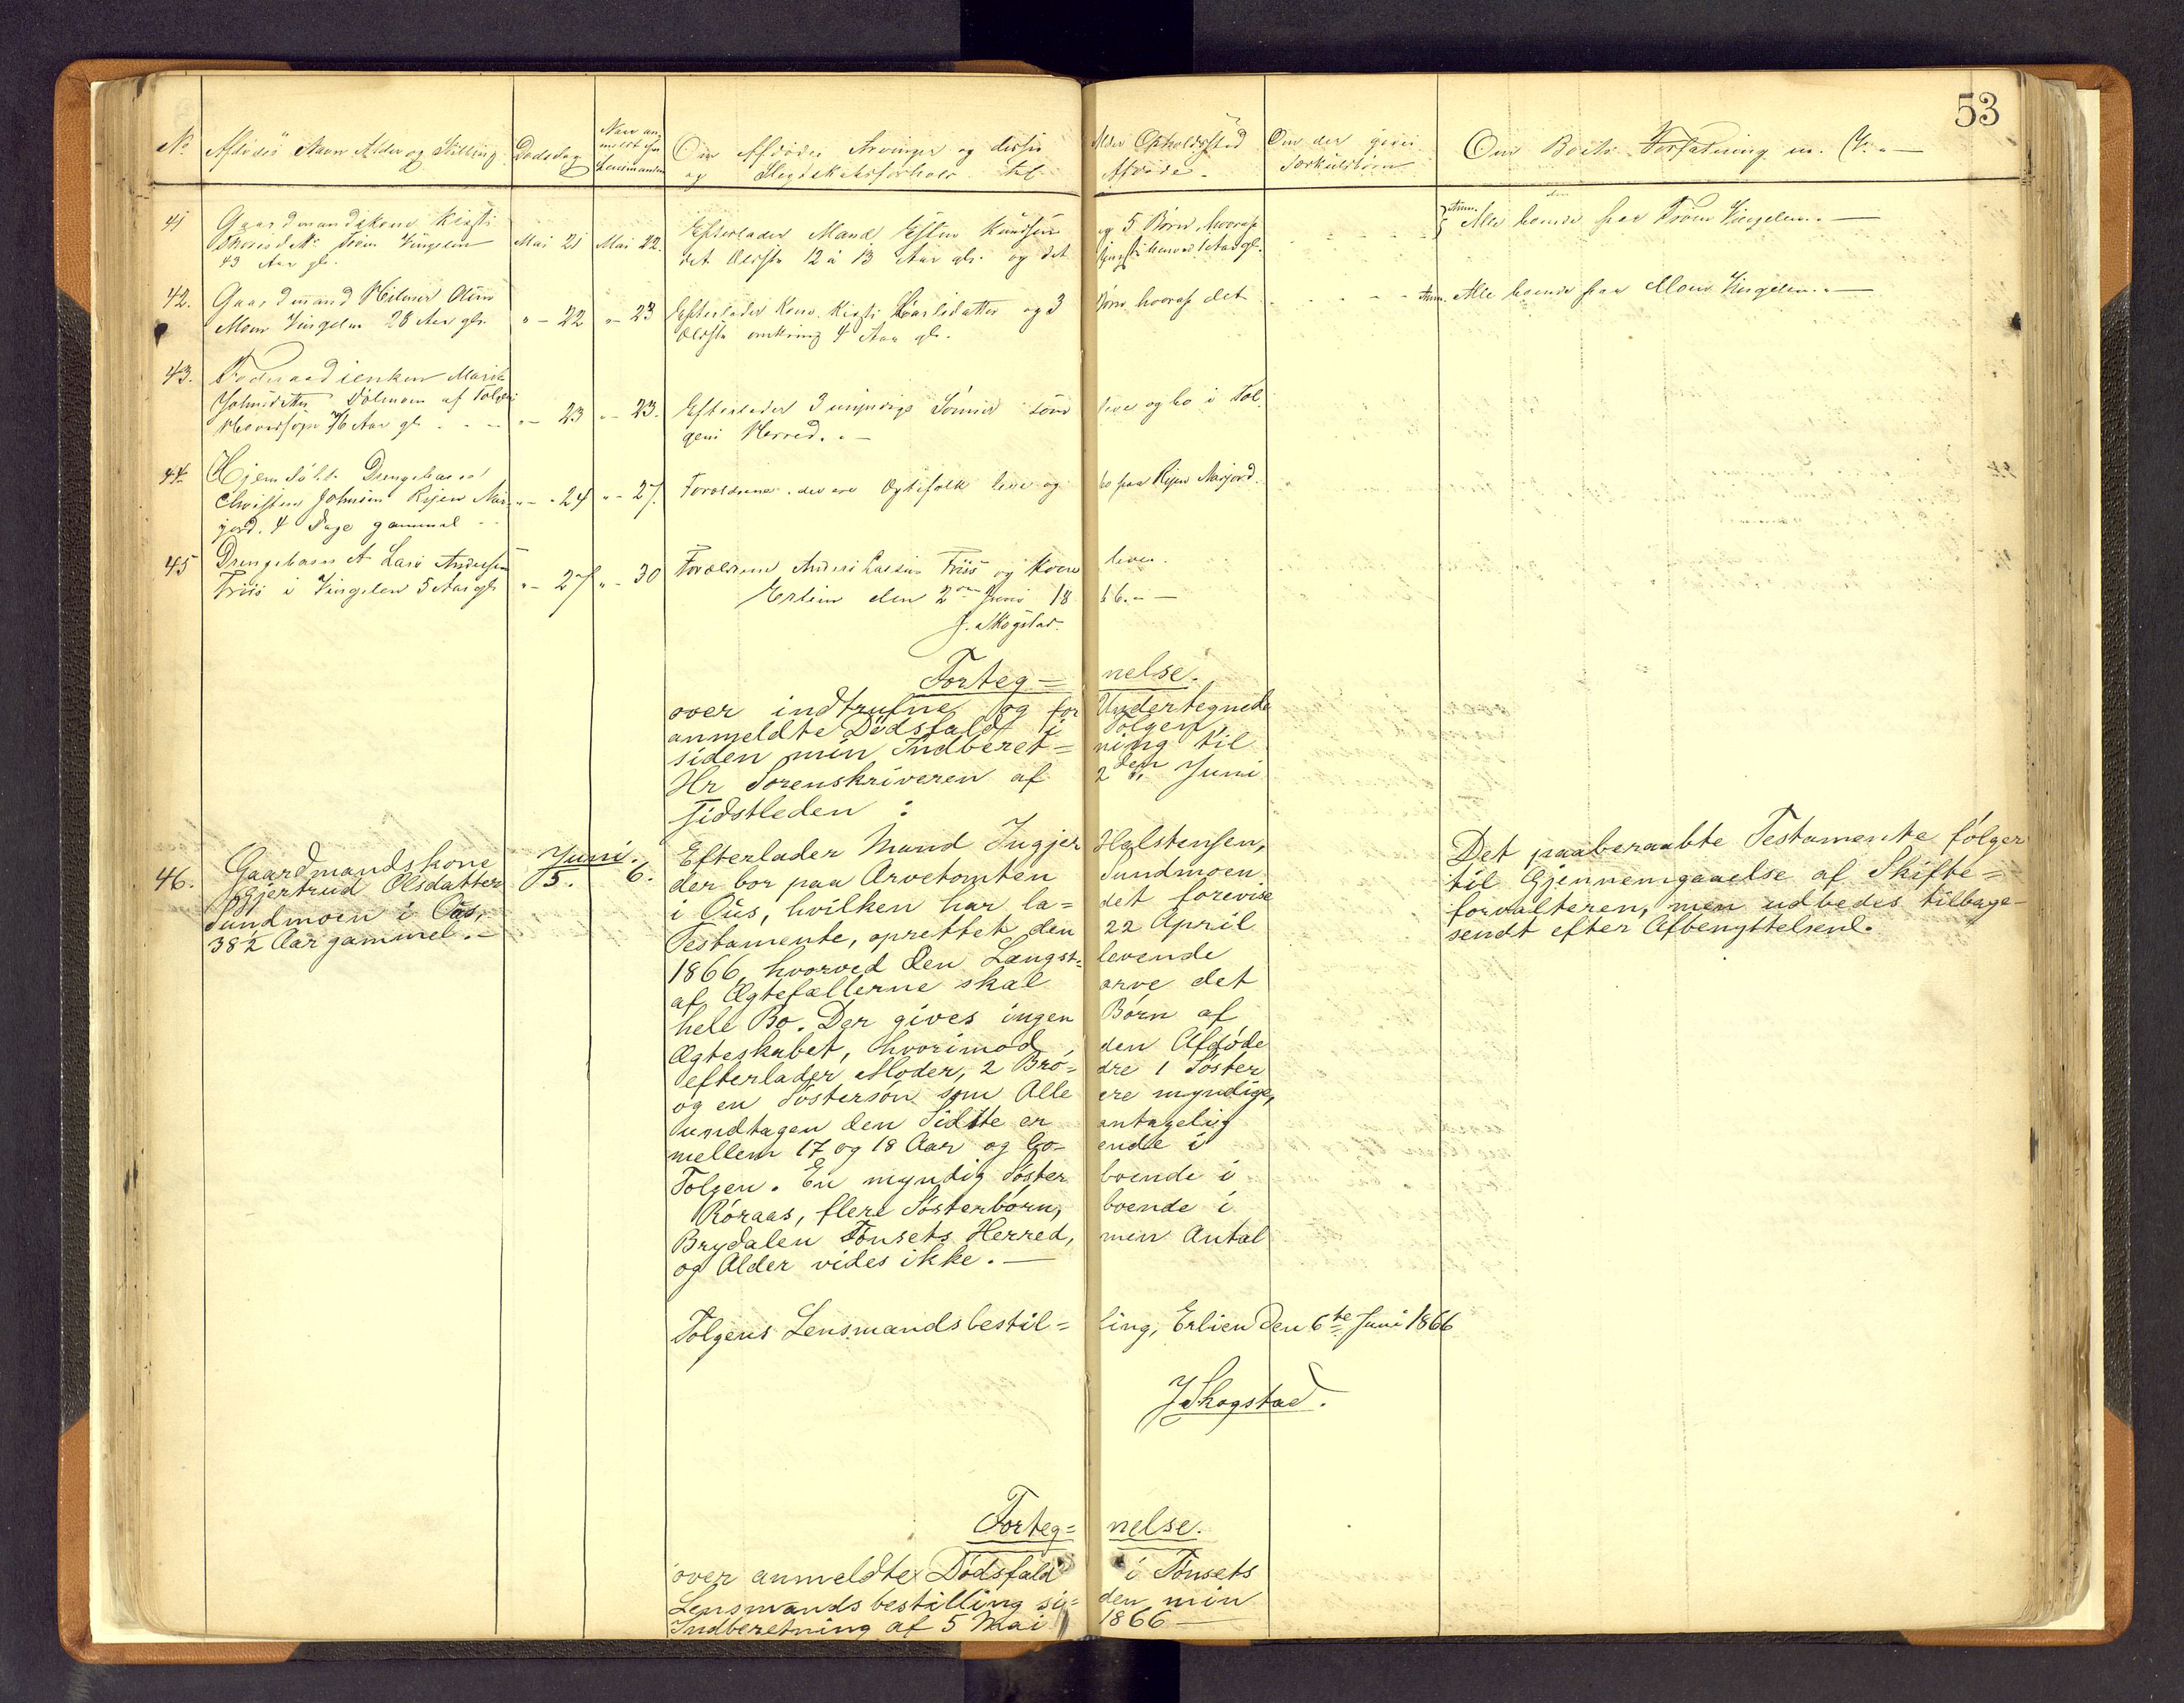 53
No Afdødes Navn Alder og Stilling Dødsdag Naar anmeldt for Lensmanden Om Afdødes Arvinger og disses Alder Opholdssted Om der gives Om Boets Forfatning m. V. —
og Slegtskabsforhold til Afdøde. Særkulsbørn
41 Gaardmandskone Kirsti
Tron Vingelen
43 Aar gl.
Mai 21 Mai 22.
Efterlader Mand Esten Knudsen og 5 Børn, hvoraf
det Ældste 12 à 13 Aar gl. og det 1 Aar gl.
Anm. Alle boende paa Tron Vingelen. —
42. Gaardmand Olsen
Moen Vingelen 28 Aar gl.
" — 22 " — 23
Efterlader Kone Kirsti Larsdatter og 3 Børn hvoraf det
Ældste omkring 4 Aar gl.
Anm. Alle boende paa Moen Vingelen. —
43. Føderaadsenken Marit
Johnsdatter Dølmoen af Tolgen
Hovedsogn 76 Aar gl.
" — 23 " — 23.
Efterlader 3 myndige Sønner som leve og bo i Tol-
gens Herred. —
44. Hjemdøbt Drengebarn
Christen Johnsen Ryen Nar-
jord. 4 Dage gammel
" — 24 " — 27.
Forældrene der ere Ægtefolk leve og bo paa Ryen Narjord.
45 Drengebarn et Lars Andersen
Friis i Vingelen 5 Aar gl.
" — 27 " — 30
Forældrene Anders Larsen Friis og Kone lever.
Erlien den 2den Juni 1866. —
J. Skogstad.
Forteg= nelse.
over indtrufne og for Undertegnede
anmeldte Dødsfald i Tolgen,
siden min Indberet= ning til
Hr Sorenskriveren af 2den Juni
sidstleden :
46. Gaardmandskone
Gjertrud Olsdatter
Sundmoen i Øus,
38½ Aar gammel. —
Juni.
5. 6.
Efterlader Mand Ingjer Halstensen,
der bor paa Arvetomten Sundmoen
i Øus, hvilken har la= det forevise
Testamente, oprettet den 22 April
1866, hvorved den Længst= levende
af Ægtefællerne skal arve det
hele Bo. Der gives ingen Børn af
Ægteskabet, hvorimod den Afdøde
efterlader Moder, 2 Brø= dre 1 Søster
og en Søstersøn som Alle ere myndige,
undtagen den Sidste er antagelig
mellem 17 og 18 Aar og bo- ende i
Tolgen. En myndig Søster boende i
Røraas, flere Søsterbørn, boende i
Brydalen Tønsets Herred, men Antal
og Alder vides ikke. —
Det paaberaabte Testamente følger
til Gjennemgaaelse af Skifte=
forvalteren, men udbedes tilbage-
sendt efter Afbenyttelsen.
Tolgens Lensmandsbestil= ling, Erlien den 6te Juni 1866
J Skogstad.
Forteg= nelse.
over anmeldte Dødsfald i Tønsets
Lensmandsbestilling si= den min
Indberetning af 5 Mai 1866 —